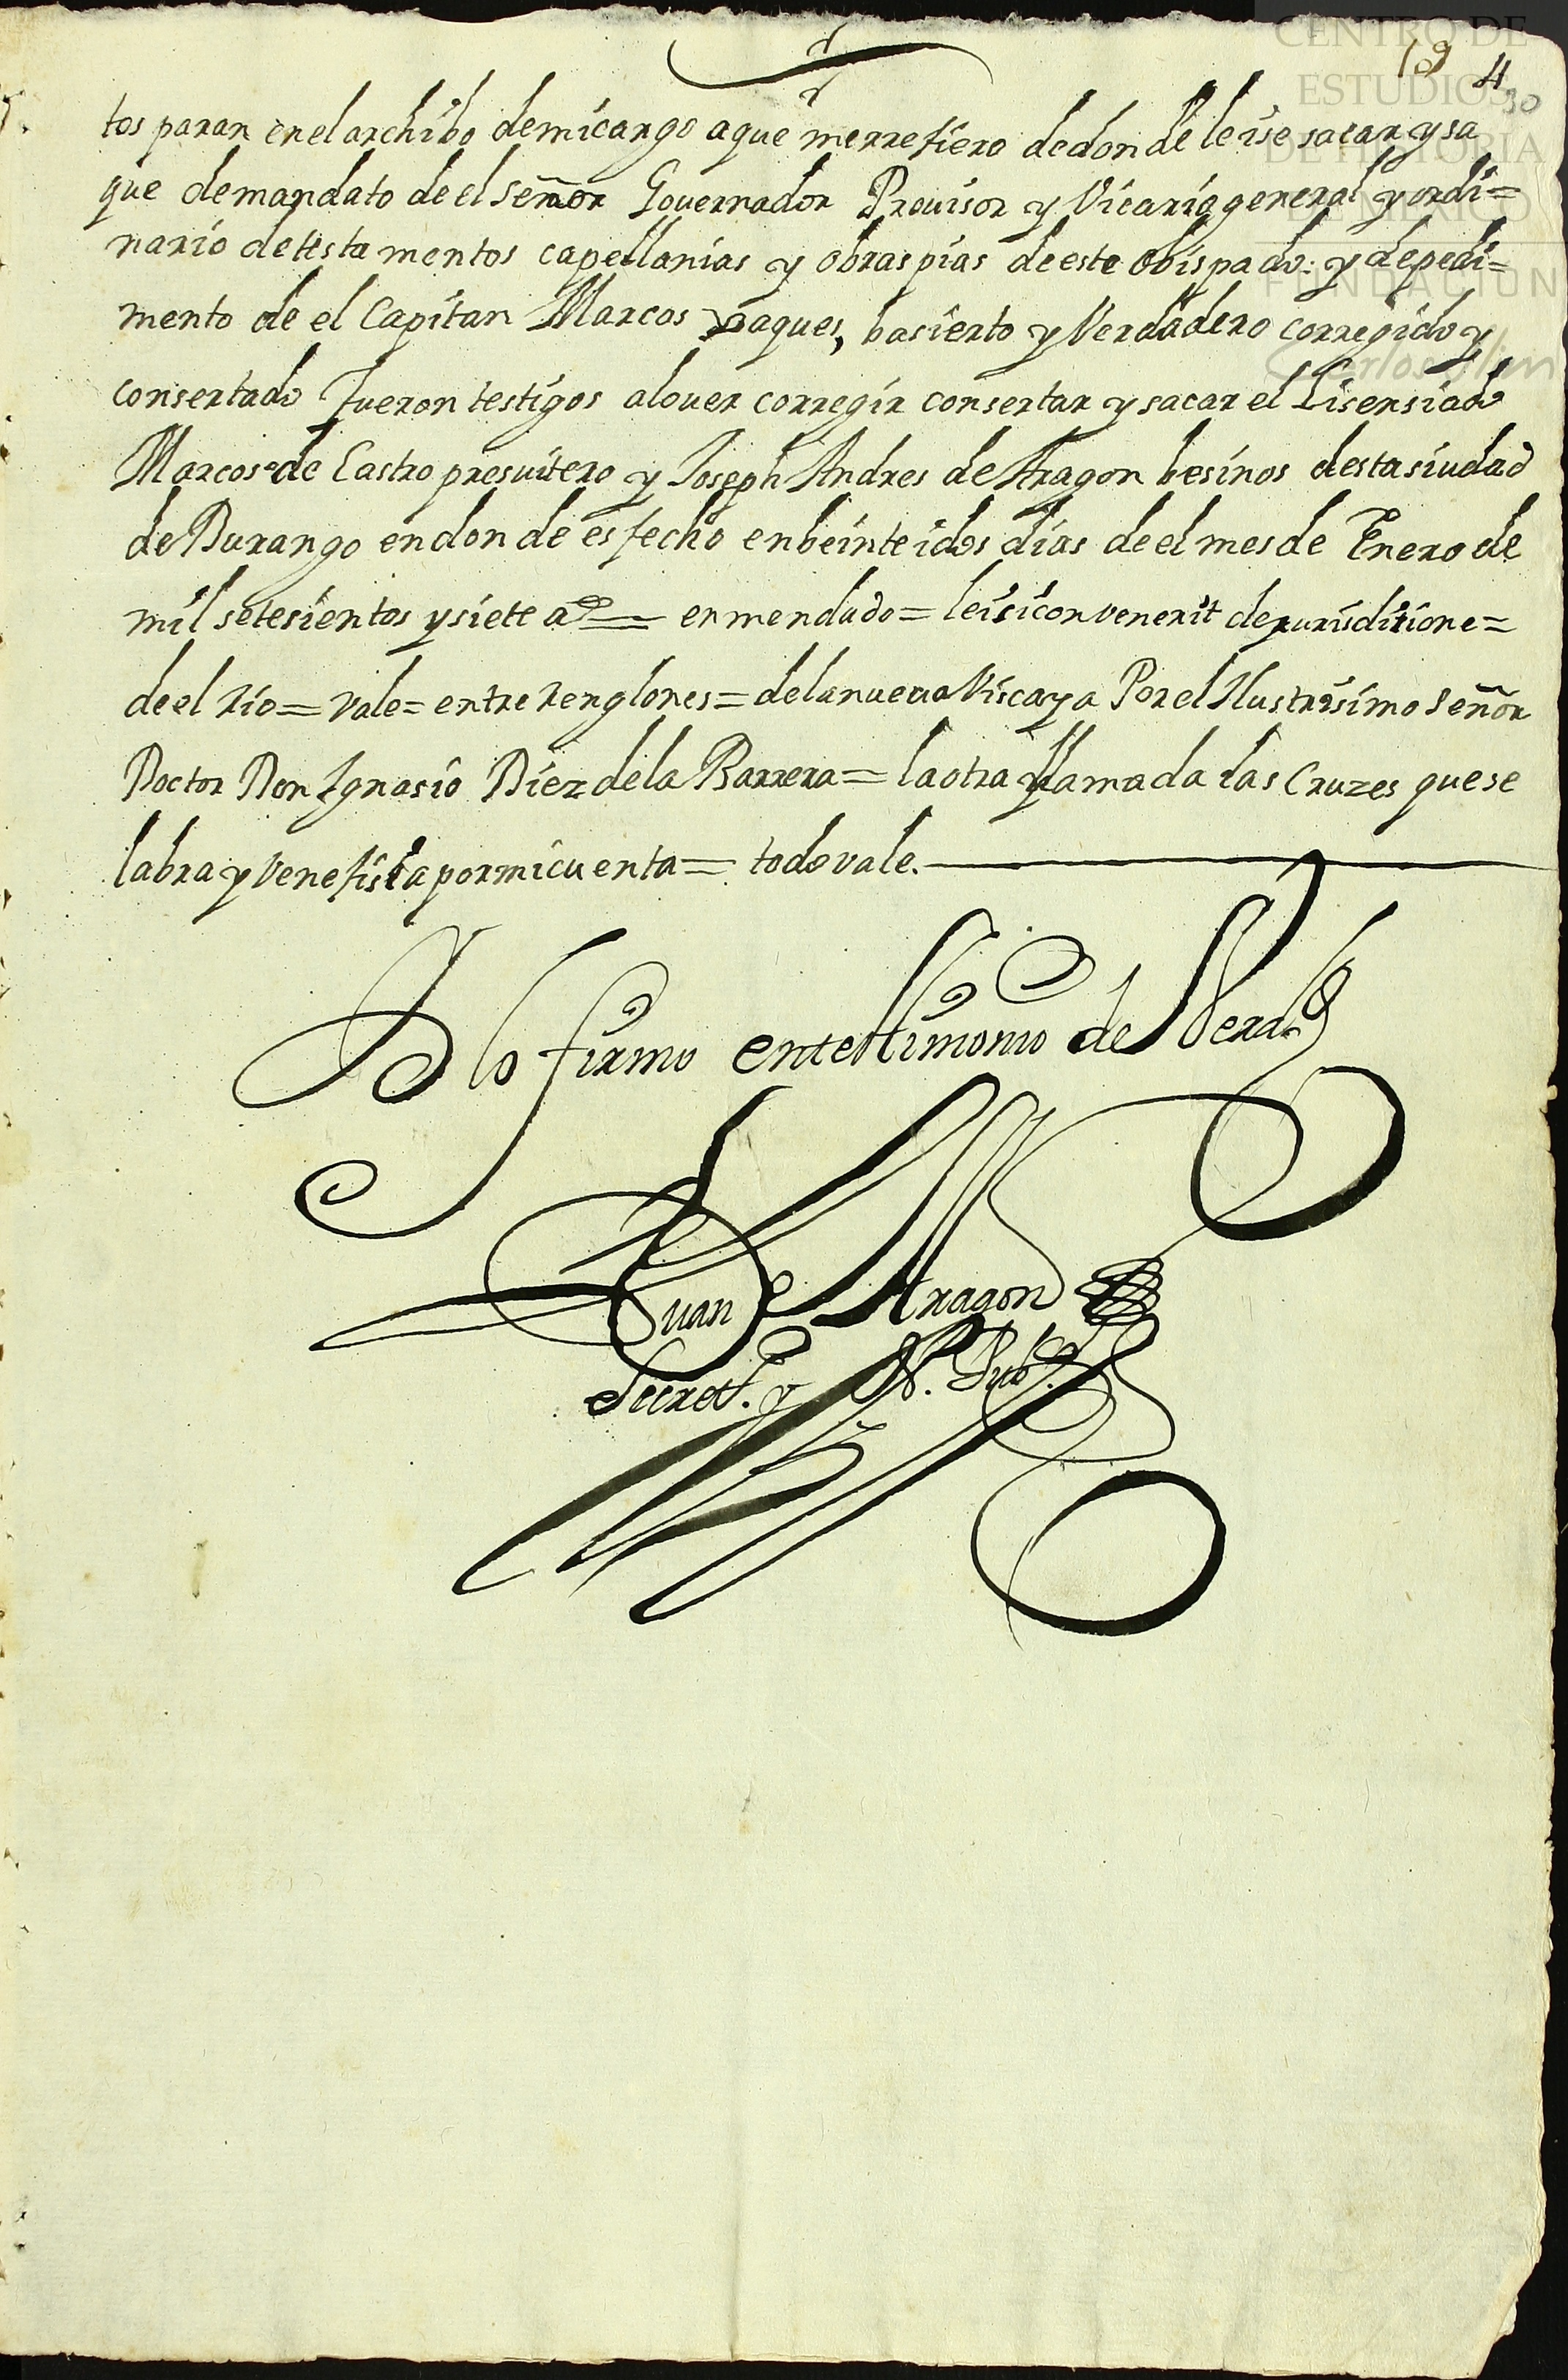 CENTRO DE
ESTUDIOS
DE HISTORIA
DE MÉXICO
FUNDACIÓN
Carlos Slim
19 4
30
tos paran en el archibo de mi cargo a que me rrefiero de donde le ise sacar y sa
que de mandato de el Señor Governador Provisor y Vicario general y ordi=
nario de testamentos capellanias y obras pias de este obispado: y de pedi=
mento de el Capitan Marcos baques, ba sierto y Verdadero corregido y
consertado fueron testigos a lo ver corregir consertar y sacar el Lisensiado
Marcos de Castro presvitero y Joseph Andres de Aragon besinos desta siudad
de Durango en donde es fecho en beinte i dos dias de el mes de Enero de
mil setesientos y siete as = enmendado = lei si convenerit de jurisditione =
de el Rio = Vale = entre Renglones = de la nueva Viscaya Por el Ilustrisimo Señor
Doctor Don Ignasio Diez de la Barrera = la otra llamada las Cruzes que se
labra y Venefisia por mi cuenta = todo vale.
Y lo firmo en testimonio de Verdad
Juan de Aragon
Secrett.º y N. Pubco.